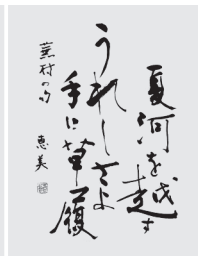 夏河を越す
うれしさよ
手に草履
蕪村の句
恵美